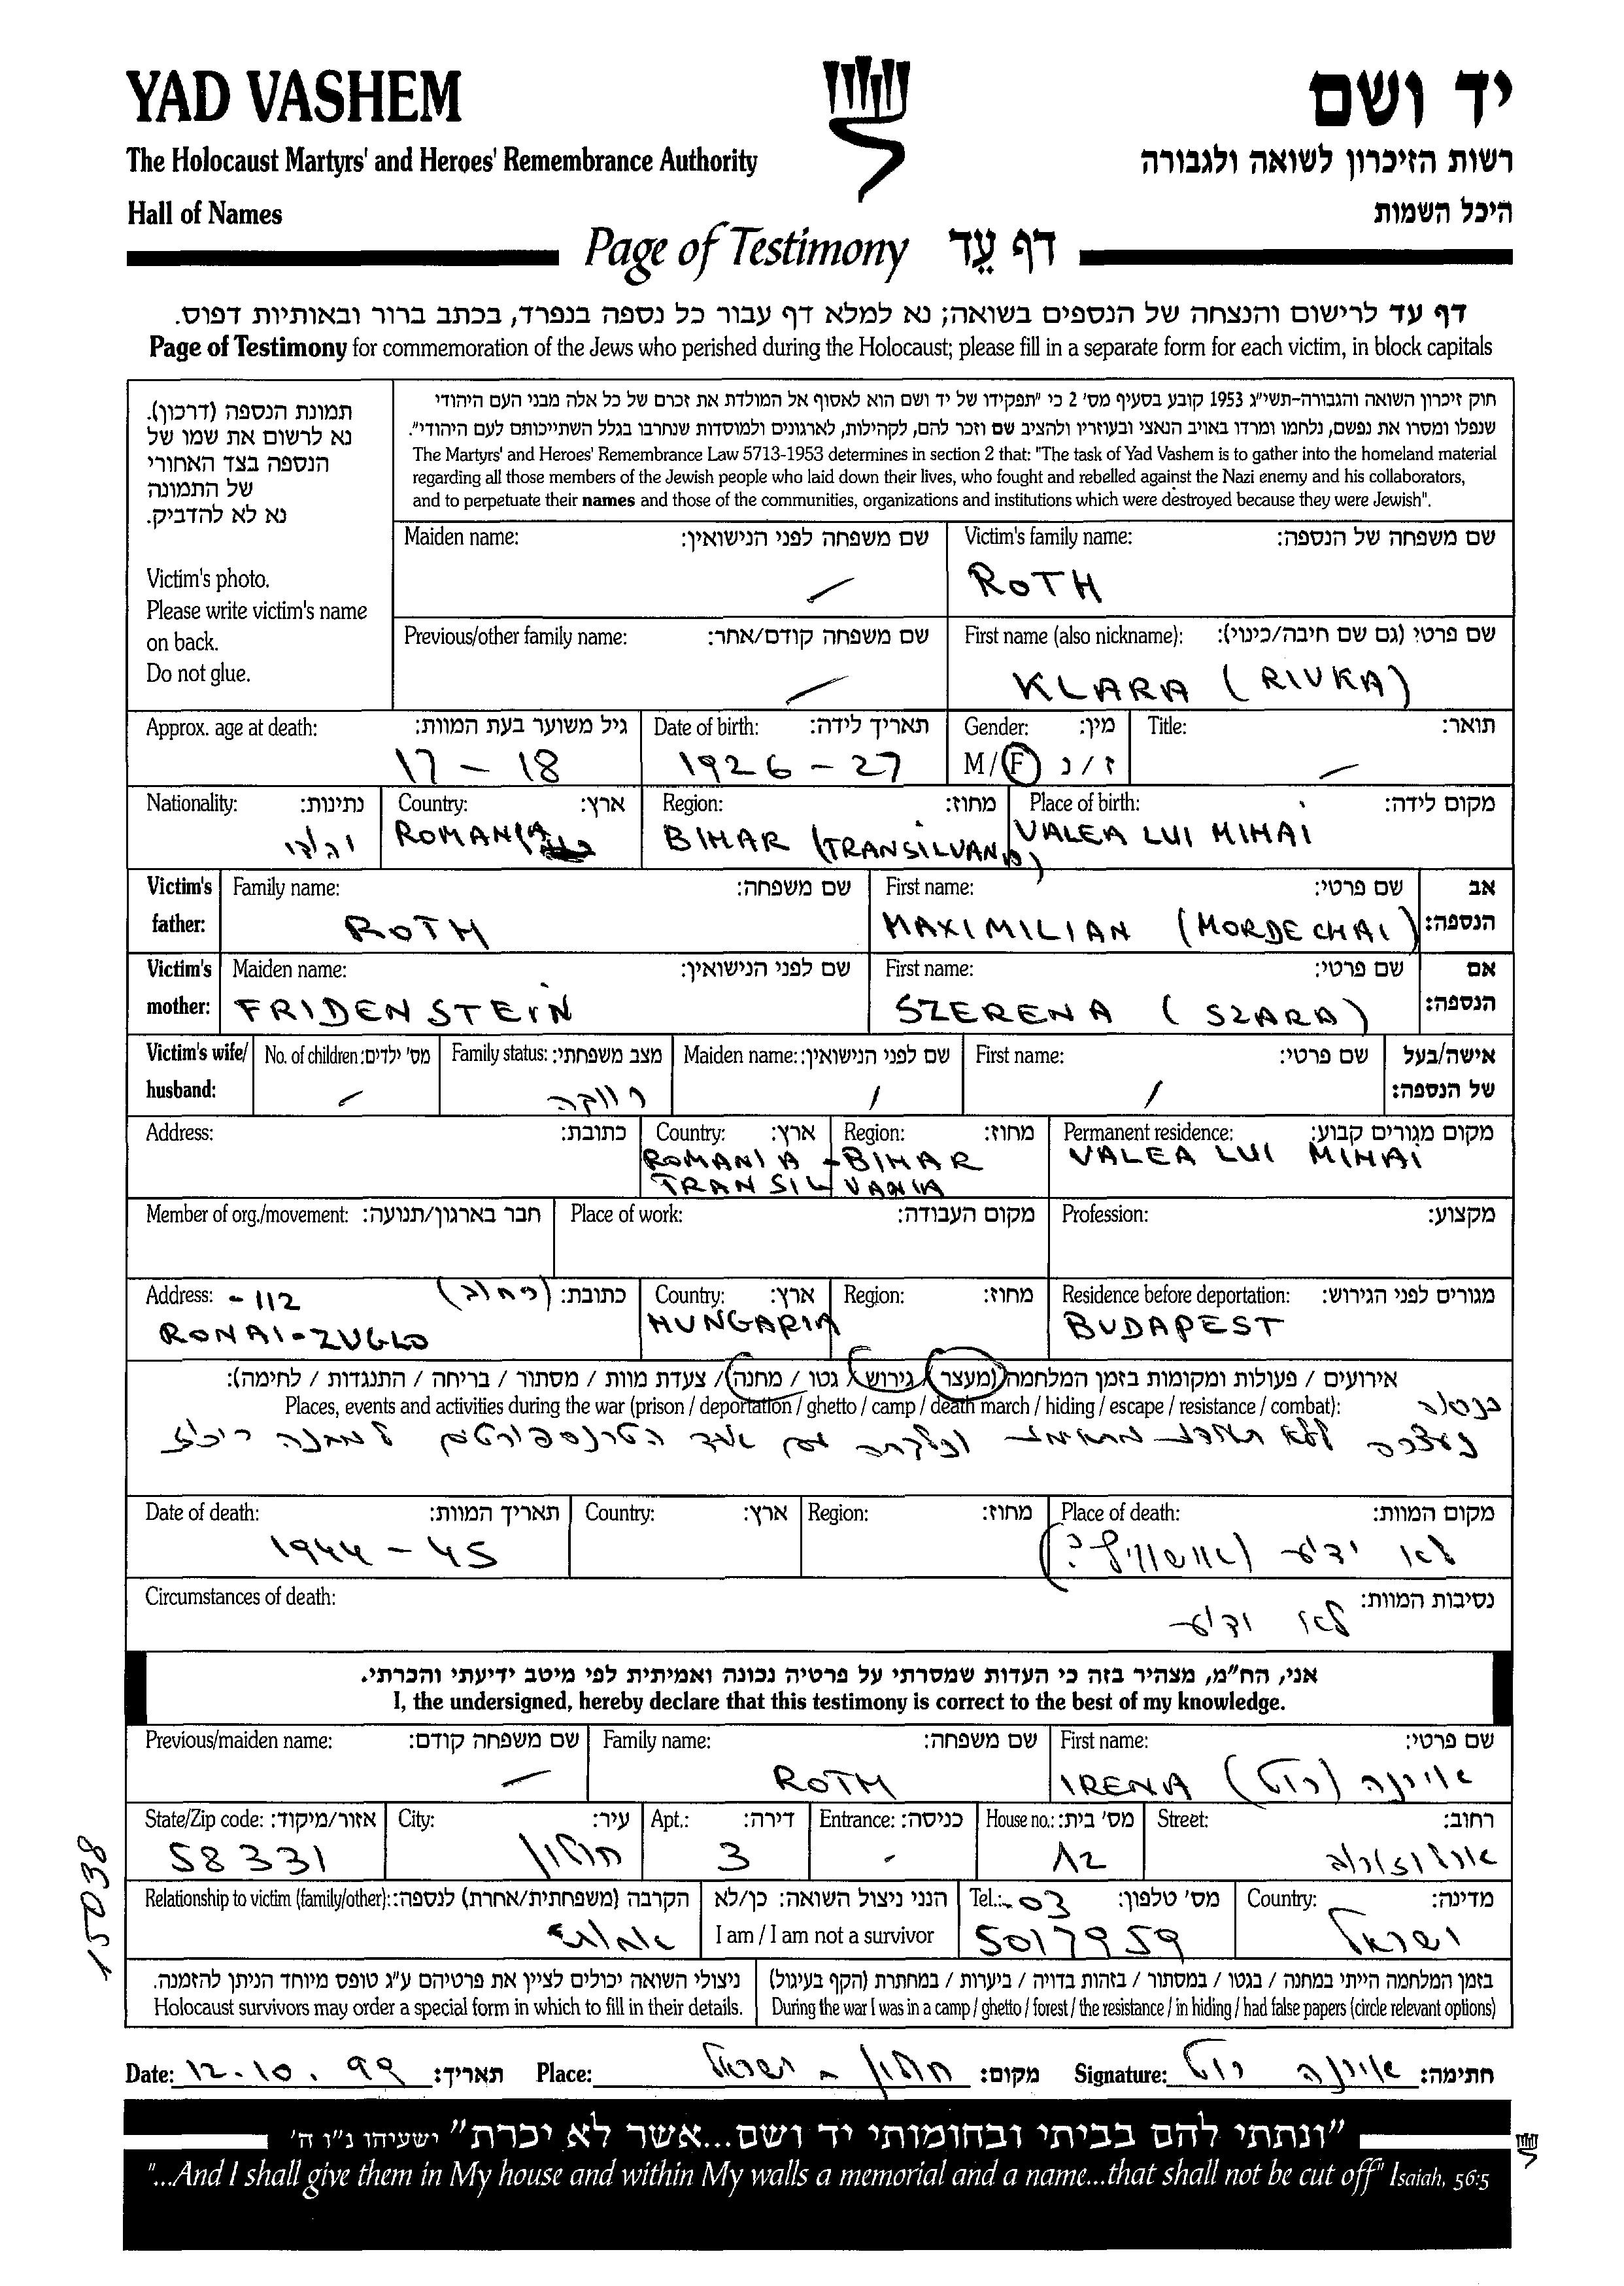 YAD VASHEM
יד ושם
The Holocaust Martyrs' and Heroes' Remembrance Authority
רשות הזיכרון לשואה ולגבורה
Hall of Names
היכל השמות
Page of Testimony דף עֵד
דף עד לרישום והנצחה של הנספים בשואה; נא למלא דף עבור כל נספה בנפרד, בכתב ברור ובאותיות דפוס.
Page of Testimony for commemoration of the Jews who perished during the Holocaust; please fill in a separate form for each victim, in block capitals
תמונת הנספה (דרכון).
נא לרשום את שמו של
הנספה בצד האחורי
של התמונה
נא לא להדביק.
Victim's photo.
Please write victim's name
on back.
Do not glue.
חוק זיכרון השואה והגבורה-תשי"ג 1953 קובע בסעיף מס' 2 כי "תפקידו של יד ושם הוא לאסוף אל המולדת את זכרם של כל אלה מבני העם היהודי
שנפלו ומסרו את נפשם, נלחמו ומרדו באויב הנאצי ובעוזריו ולהציב שם וזכר להם, לקהילות, לארגונים ולמוסדות שנחרבו בגלל השתייכותם לעם היהודי".
The Martyrs' and Heroes' Remembrance Law 5713-1953 determines in section 2 that: "The task of Yad Vashem is to gather into the homeland material
regarding all those members of the Jewish people who laid down their lives, who fought and rebelled against the Nazi enemy and his collaborators,
and to perpetuate their names and those of the communities, organizations and institutions which were destroyed because they were Jewish".
Maiden name: שם משפחה לפני הנישואין: Victim's family name: שם משפחה של הנספה:
- ROTH
Previous/other family name: שם משפחה קודם/אחר: First name (also nickname): שם פרטי (גם שם חיבה/כינוי):
- KLARA (RIVKA)
Approx. age at death: גיל משוער בעת המוות: Date of birth: תאריך לידה: Gender: מין: Title: תואר:
17 - 18 1926 - 27 M / F ז / נ -
Nationality: נתינות: Country: ארץ: Region: מחוז: Place of birth: מקום לידה:
ROMANIA BIHAR (TRANSILVANIA) VALEA LUI MIHAI
Victim's father: Family name: שם משפחה: First name: שם פרטי: אב הנספה:
ROTH MAXIMILIAN (MORDECHAI)
Victim's mother: Maiden name: שם לפני הנישואין: First name: שם פרטי: אם הנספה:
FRIDENSTEIN SZERENA (SZARA)
Victim's wife/ husband: No. of children: מס' ילדים: Family status: מצב משפחתי: Maiden name: שם לפני הנישואין: First name: שם פרטי: אישה/בעל של הנספה:
- רווקה / /
Address: כתובת: Country: ארץ: Region: מחוז: Permanent residence: מקום מגורים קבוע:
ROMANIA - BIHAR VALEA LUI MIHAI
TRANSILVANIA
Member of org./movement: חבר בארגון/תנועה: Place of work: מקום העבודה: Profession: מקצוע:
Address: - 112 (רחוב) כתובת: Country: ארץ: Region: מחוז: Residence before deportation: מגורים לפני הגירוש:
RONAI-ZUGLO HUNGARIA BUDAPEST
אירועים / פעולות ומקומות בזמן המלחמה (מעצר / גירוש / גטו / מחנה / צעדת מוות / מסתור / בריחה / התנגדות / לחימה):
Places, events and activities during the war (prison / deportation / ghetto / camp / death march / hiding / escape / resistance / combat):
נעצרה ללא ונלקחה עם אחד הטרנספורטים למחנה ריכוז
Date of death: תאריך המוות: Country: ארץ: Region: מחוז: Place of death: מקום המוות:
1944 - 45 לא ידוע (אושוויץ?)
Circumstances of death: נסיבות המוות:
לא ידוע
אני, הח"מ, מצהיר בזה כי העדות שמסרתי על פרטיה נכונה ואמיתית לפי מיטב ידיעתי והכרתי.
I, the undersigned, hereby declare that this testimony is correct to the best of my knowledge.
Previous/maiden name: שם משפחה קודם: Family name: שם משפחה: First name: שם פרטי:
- ROTH IRENA (רוט) אירינה
State/Zip code: אזור/מיקוד: City: עיר: Apt.: דירה: Entrance: כניסה: House no.: מס' בית: Street: רחוב:
58331 חולון 3 - 12
Relationship to victim (family/other): הקרבה (משפחתית/אחרת) לנספה: הנני ניצול השואה: כן/לא Tel.: 03- מס' טלפון: Country: מדינה:
I am / I am not a survivor 5017959 ישראל
ניצולי השואה יכולים לציין את פרטיהם ע"ג טופס מיוחד הניתן להזמנה. בזמן המלחמה הייתי במחנה / בגטו / במסתור / בזהות בדויה / ביערות / במחתרת (הקף בעיגול)
Holocaust survivors may order a special form in which to fill in their details. During the war I was in a camp / ghetto / forest / the resistance / in hiding / had false papers (circle relevant options)
Date: 12.10.99 תאריך: Place: חולון - ישראל מקום: Signature: אירינה רוט חתימה:
15038
"ונתתי להם בביתי ובחומותי יד ושם...אשר לא יכרת" ישעיהו נ"ו ה'
"...And I shall give them in My house and within My walls a memorial and a name...that shall not be cut off" Isaiah, 56:5